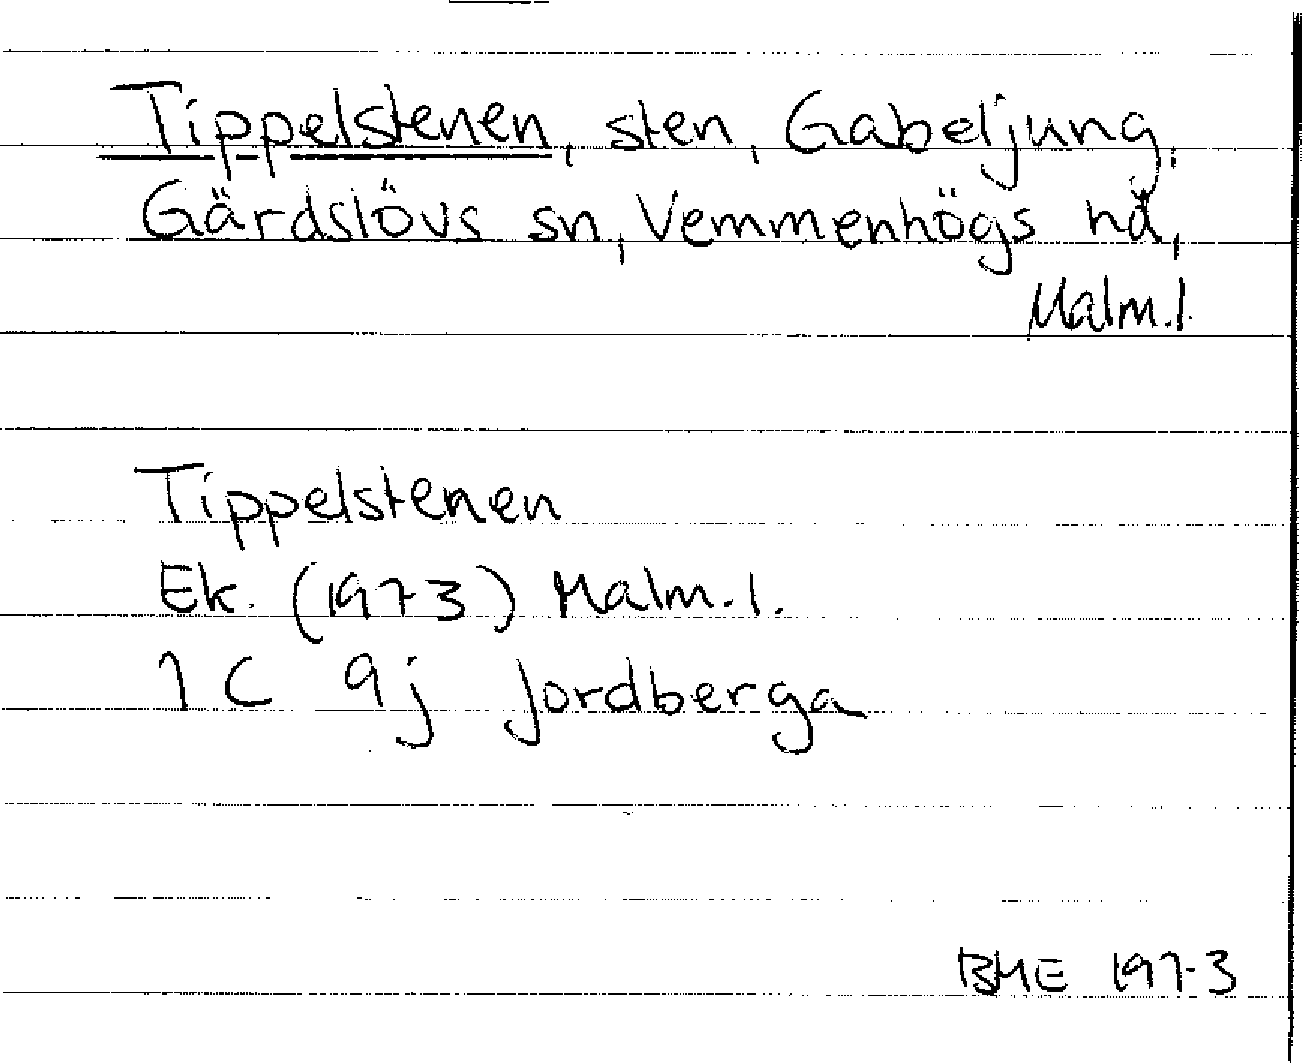 Tippelstenen, sten, Gabeljung,
Gärdslövs sn, Vemmenhögs hd,
Malm.l.
Tippelstenen
Ek. (1973) Malm.l.
1 C 9j Jordberga
BME 1973